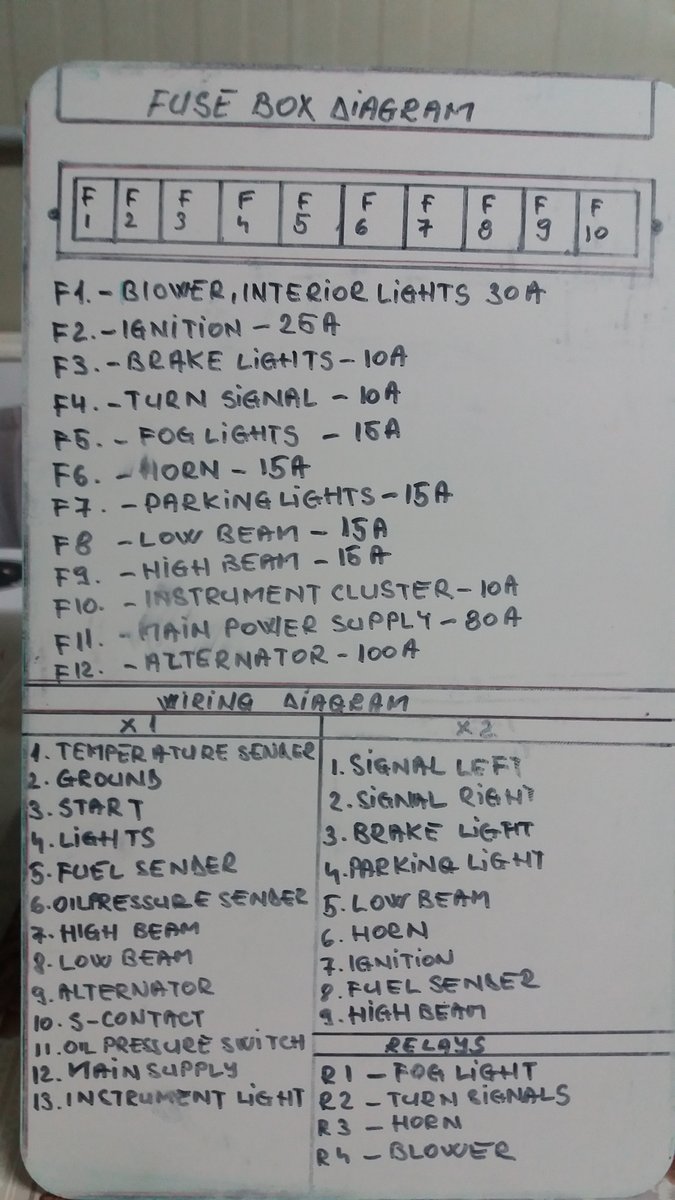 FUSE BOX DIAGRAM
F1 F2 F3 F4 F5 F6 F7 F8 F9 F10
F1. - BLOWER, INTERIOR LIGHTS 30A
F2. - IGNITION - 25A
F3. - BRAKE LIGHTS - 10A
F4. - TURN SIGNAL - 10A
F5. - FOG LIGHTS - 15A
F6. - HORN - 15A
F7. - PARKING LIGHTS - 15A
F8 - LOW BEAM - 15A
F9. - HIGH BEAM - 15A
F10. - INSTRUMENT CLUSTER - 10A
F11. - MAIN POWER SUPPLY - 80A
F12. - ALTERNATOR - 100A
WIRING DIAGRAM
X1
1. TEMPERATURE SENDER
2. GROUND
3. START
4. LIGHTS
5. FUEL SENDER
6. OIL PRESSURE SENDER
7. HIGH BEAM
8. LOW BEAM
9. ALTERNATOR
10. S-CONTACT
11. OIL PRESSURE SWITCH
12. MAIN SUPPLY
13. INSTRUMENT LIGHT
X2
1. SIGNAL LEFT
2. SIGNAL RIGHT
3. BRAKE LIGHT
4. PARKING LIGHT
5. LOW BEAM
6. HORN
7. IGNITION
8. FUEL SENDER
9. HIGH BEAM
RELAYS
R1 - FOG LIGHT
R2 - TURN SIGNALS
R3 - HORN
R4 - BLOWER